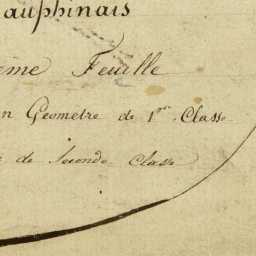 auphinais
ème Feuille
n Geometre de 1er Classe
de Seconde Classe